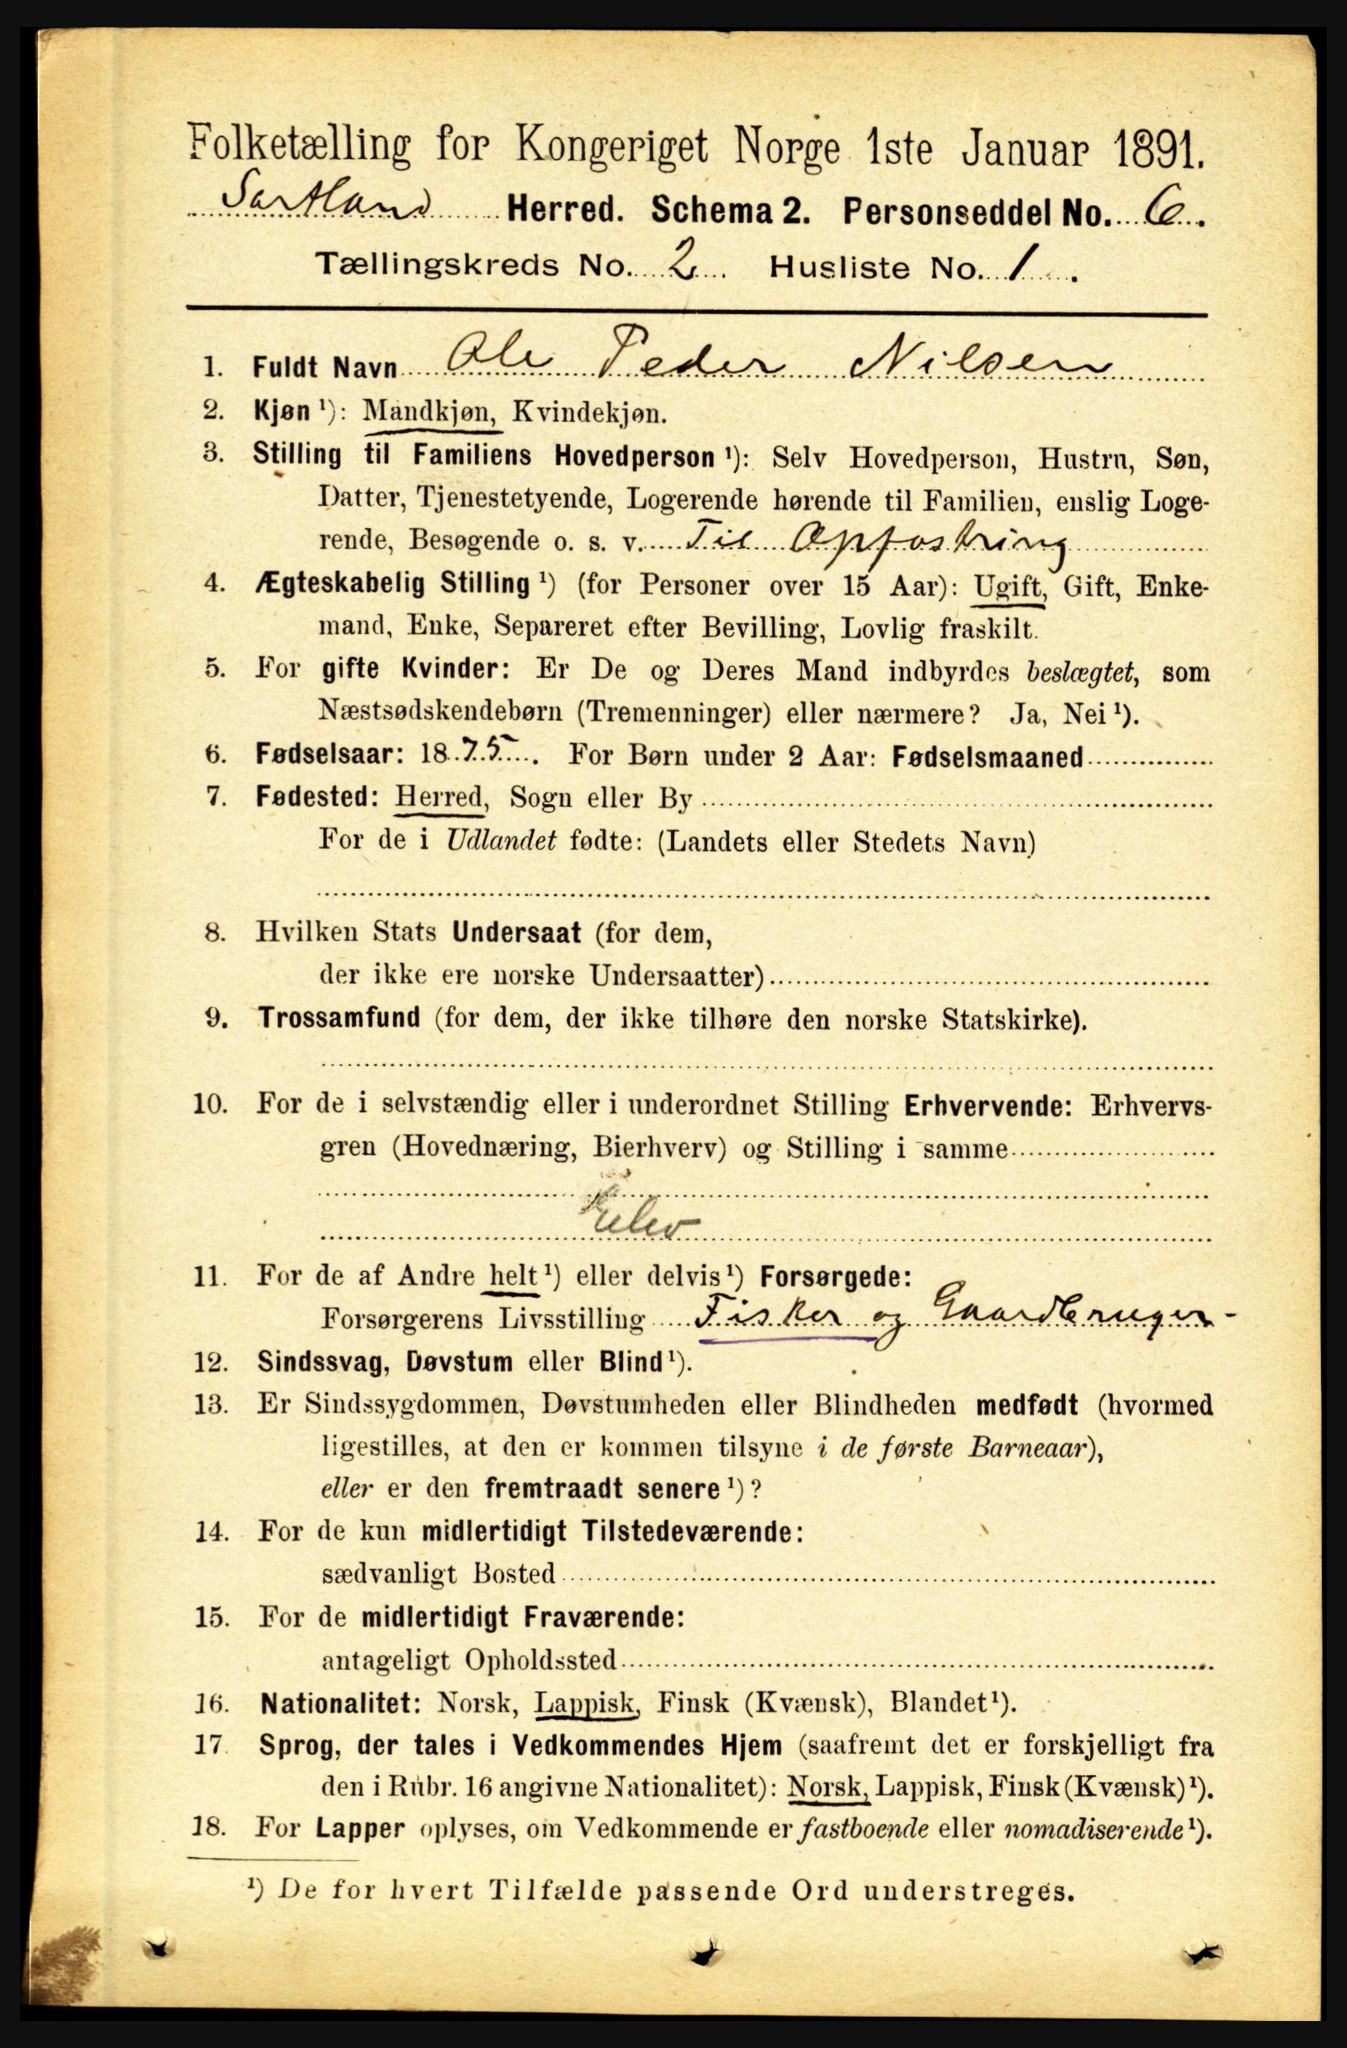 Folketælling for Kongeriget Norge 1ste Januar 1891.
Sortland Herred. Schema 2. Personseddel No. 6.
Tællingskreds No. 2 Husliste No. 1.
1. Fuldt Navn Ole Peder Nilsen
2. Kjøn ¹): Mandkjøn, Kvindekjøn.
3. Stilling til Familiens Hovedperson ¹): Selv Hovedperson, Hustru, Søn,
Datter, Tjenestetyende, Logerende hørende til Familien, enslig Loge-
rende, Besøgende o. s. v. Til Opfostring
4. Ægteskabelig Stilling ¹) (for Personer over 15 Aar): Ugift, Gift, Enke-
mand, Enke, Separeret efter Bevilling, Lovlig fraskilt.
5. For gifte Kvinder: Er De og Deres Mand indbyrdes beslægtet, som
Næstsødskendebørn (Tremenninger) eller nærmere? Ja, Nei ¹).
6. Fødselsaar: 1875. For Børn under 2 Aar: Fødselsmaaned
7. Fødested: Herred, Sogn eller By
For de i Udlandet fødte: (Landets eller Stedets Navn)
8. Hvilken Stats Undersaat (for dem,
der ikke ere norske Undersaatter)
9. Trossamfund (for dem, der ikke tilhøre den norske Statskirke).
10. For de i selvstændig eller i underordnet Stilling Erhvervende: Erhvervs-
gren (Hovednæring, Bierhverv) og Stilling i samme
Elev
11. For de af Andre helt ¹) eller delvis ¹) Forsørgede:
Forsørgerens Livsstilling Fisker og Gaardbruger -
12. Sindssvag, Døvstum eller Blind ¹).
13. Er Sindssygdommen, Døvstumheden eller Blindheden medfødt (hvormed
ligestilles, at den er kommen tilsyne i de første Barneaar),
eller er den fremtraadt senere ¹)?
14. For de kun midlertidigt Tilstedeværende:
sædvanligt Bosted
15. For de midlertidigt Fraværende:
antageligt Opholdssted
16. Nationalitet: Norsk, Lappisk, Finsk (Kvænsk), Blandet ¹).
17. Sprog, der tales i Vedkommendes Hjem (saafremt det er forskjelligt fra
den i Rubr. 16 angivne Nationalitet): Norsk, Lappisk, Finsk (Kvænsk) ¹).
18. For Lapper oplyses, om Vedkommende er fastboende eller nomadiserende ¹).
¹) De for hvert Tilfælde passende Ord understreges.